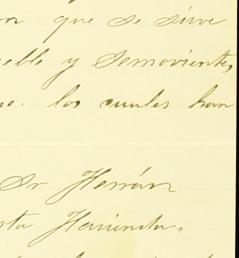 que se sirve
eble y semoviente,
los cuales han
Sr Herrán
sta Hacienda.